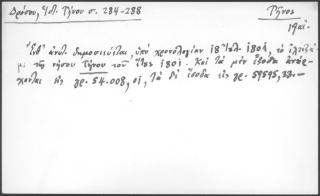 Δρόσου, Ἱστ. Τήνου σ. 284-288
Τῆνος
19 αἰ.
Ἔνθ' ἀνωτ. δημοσιεύεται, ὑπὸ χρονολογίαν 18 Ἰουλ. 1801, τὸ
με τῆς νήσου Τήνου τοῦ ἔτους 1801. Καὶ τὰ μὲν ἔξοδα ἀνέρ-
χονται εἰς γρ. 54.008,01, τὰ δὲ ἔσοδα εἰς γρ. 59595,33.—